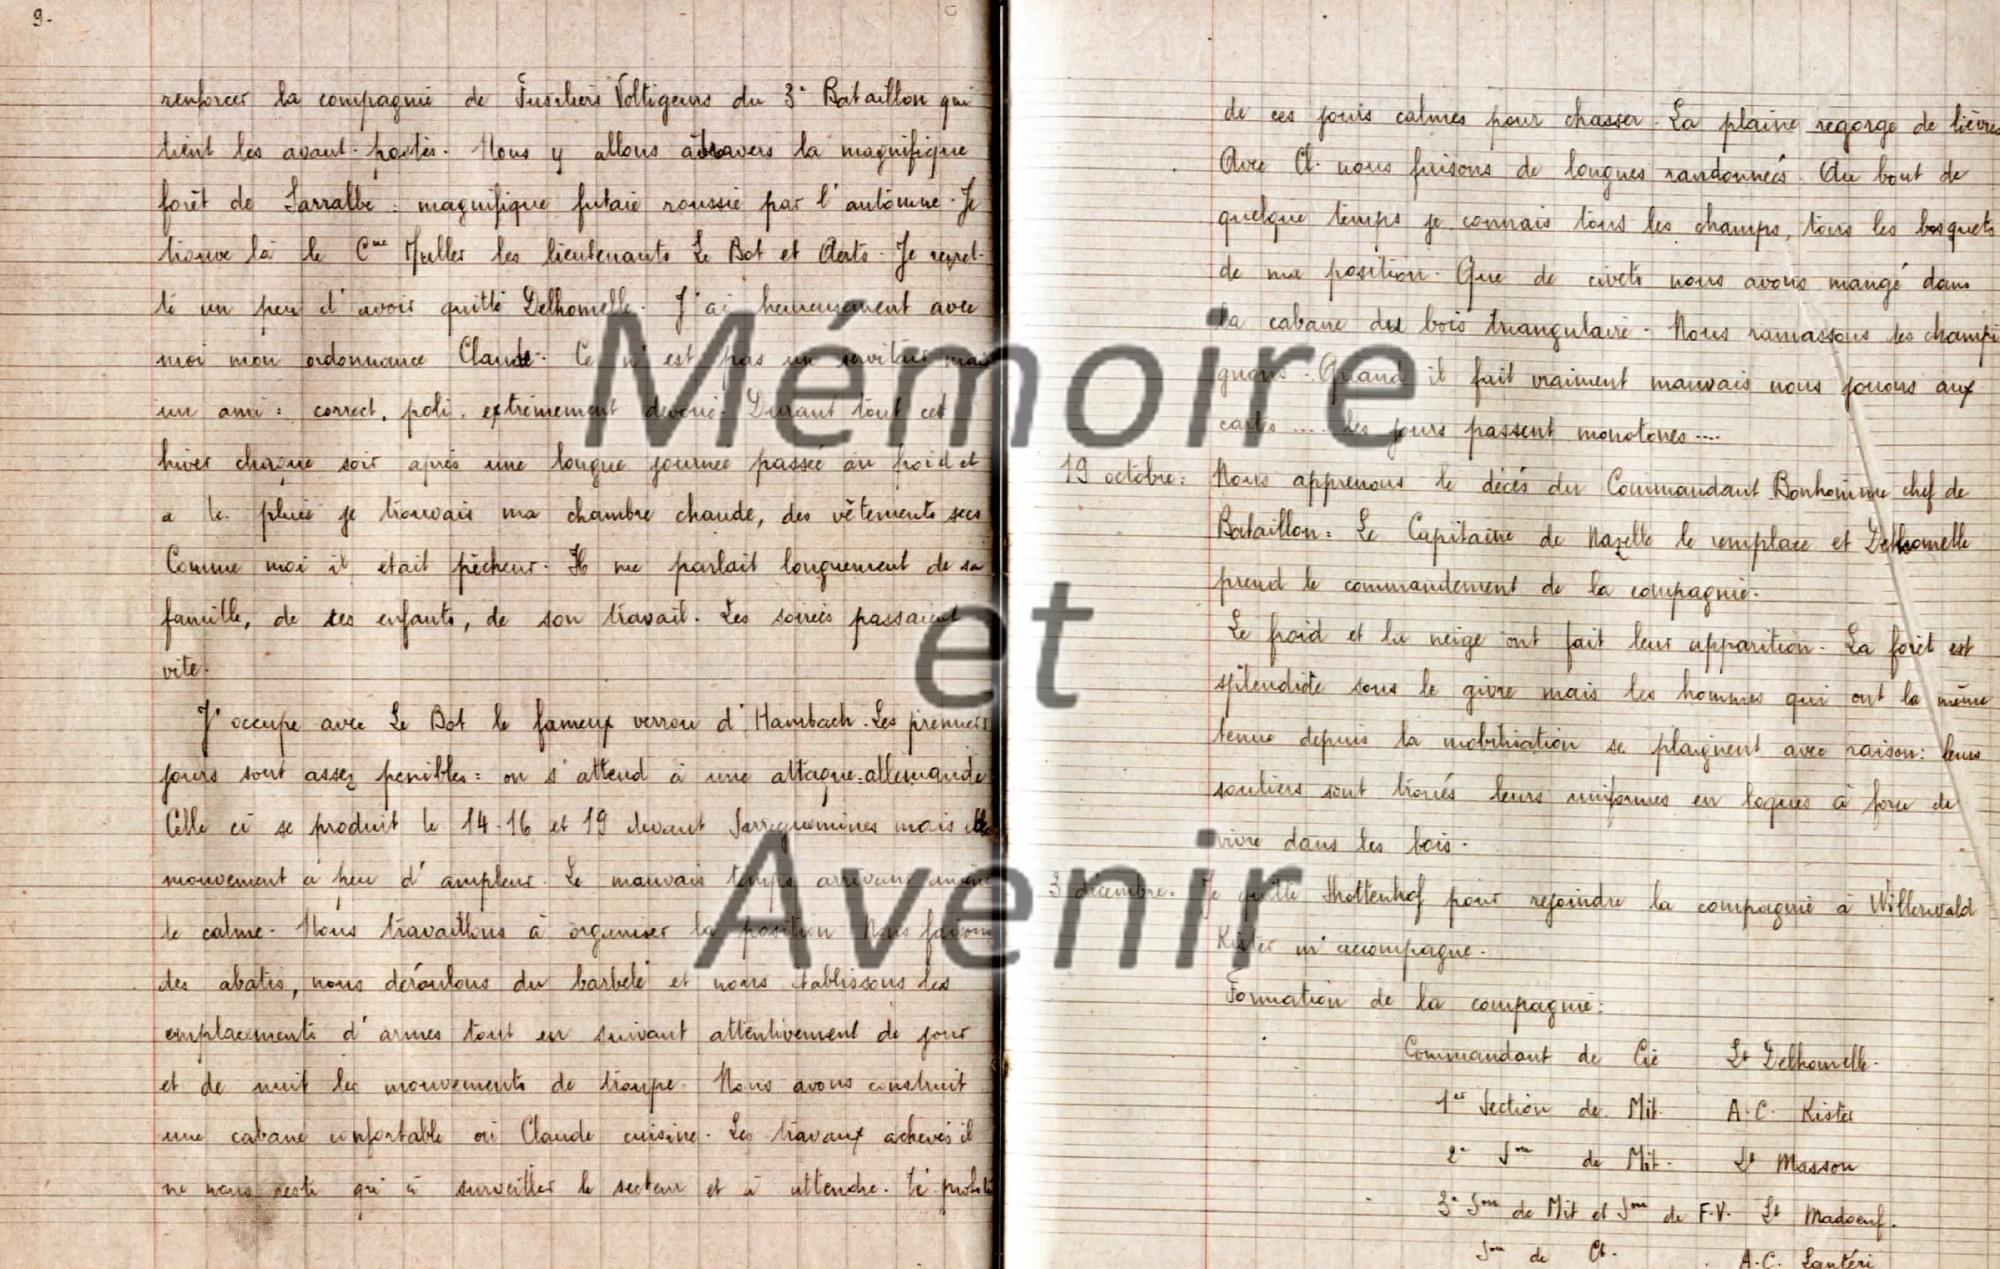 9.
renforcer la compagnie de Fusiliers Voltigeurs du 3e Bataillon qui
tient les avant-postes. Nous y allons à travers la magnifique
forêt de Sarralbe : magnifique futaie roussie par l'automne. Je
trouve là le Cne Muller les lieutenants Le Bot et Aerts. Je regret-
te un peu d'avoir quitté Delhomelle. J'ai heureusement avec
moi mon ordonnance Claude. Ce n'est pas un serviteur mais
un ami : correct, poli, extrêmement dévoué. Durant tout cet
hiver chaque soir après une longue journée passée au froid et
a la pluie je trouvais ma chambre chaude, des vêtements secs
Comme moi il etait pêcheur. Il me parlait longuement de sa
famille, de ses enfants, de son travail. Les soirées passaient
vite.
J'occupe avec Le Bot le fameux verrou d'Hambach. Les premiers
jours sont assez penibles : on s'attend à une attaque allemande
Celle ci se produit le 14-16 et 19 devant Sarreguemines mais
mouvement a peu d'ampleur. Le mauvais temps arrivant
le calme. Nous travaillons à organiser la position Nous faisons
des abatis, nous déroulons du barbelé et nous établissons les
emplacements d'armes tout en suivant attentivement de jour
et de nuit les mouvements de troupe. Nous avons construit
une cabane confortable où Claude cuisine. Les travaux achevés il
ne nous reste qu'à surveiller le secteur et à attendre. Je profite
de ces jours calmes pour chasser. La plaine regorge de lièvres
Avec Cl. nous faisons de longues randonnées. Au bout de
quelque temps je connais tous les champs, tous les bosquets
de ma position. Que de civets nous avons mangé dans
la cabane du bois triangulaire. Nous ramassons des champi
gnons. Quand il fait vraiment mauvais nous jouons aux
cartes .... Les jours passent monotones ....
19 octobre : Nous apprenons le décès du Commandant Bonhomme chef de
Bataillon : Le Capitaine de Nazelle le remplace et Delhomelle
prend le commandement de la compagnie.
Le froid et la neige ont fait leur apparition. La forêt est
splendide sous le givre mais les hommes qui ont la même
tenue depuis la mobilisation se plaignent avec raison : leurs
souliers sont troués leurs uniformes en loques à force de
vivre dans les bois.
3 décembre. Je quitte Shottenhof pour rejoindre la compagnie à Willerwald
Kister m'accompagne.
Formation de la compagnie :
Commandant de Cie Lt Delhomelle.
1er Section de Mit. A.C. Kister
2e Son de Mit. Lt Masson
3e Son de Mit et Son de F.V. Lt Madoeuf.
Son de Ct. A.C. Lantéri
Mémoire
et
Avenir